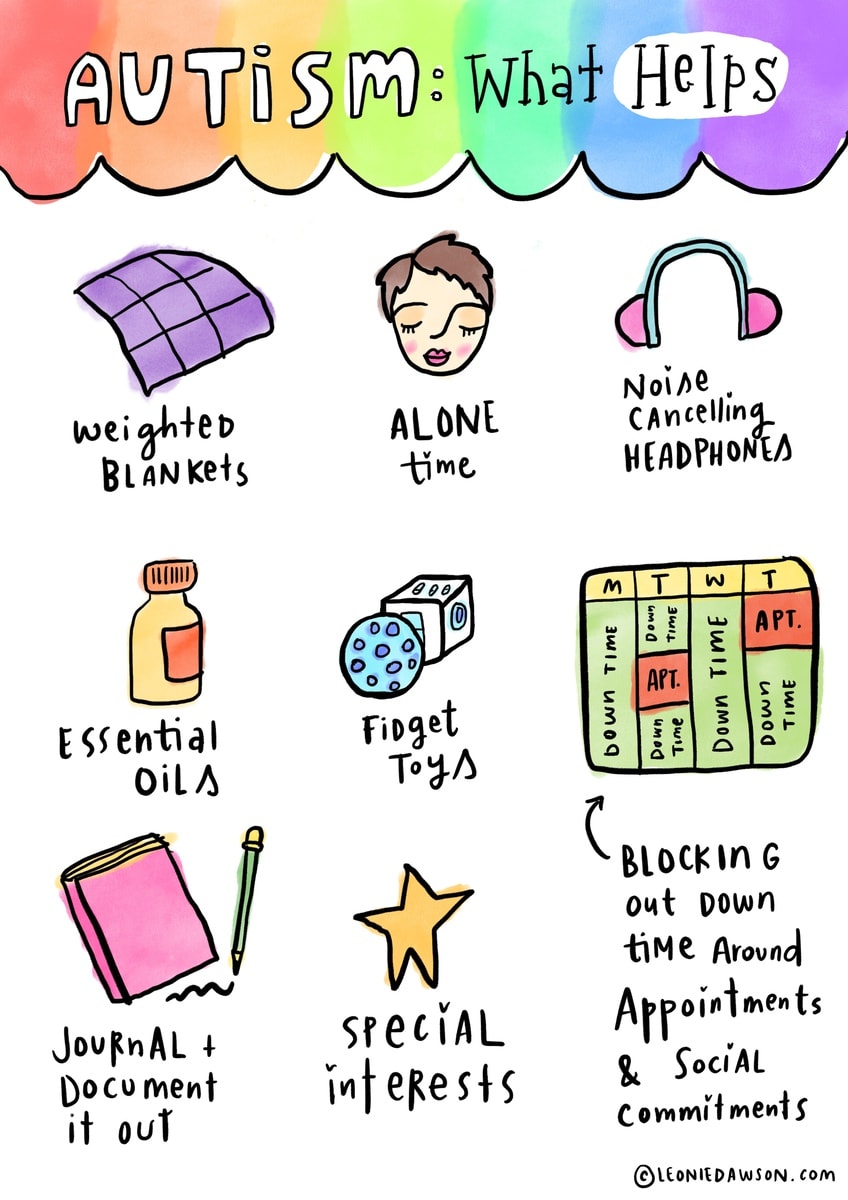 AUTiSM: What Helps
weighted
BLANKets
ALONE
time
Noise
CANcelling
HEADPHONES
Essential
OilS
FiDget
ToyS
M T W T
DOWN TIME
DOWN TIME
APT.
DOWN TIME
DOWN TIME
APT.
DOWN TIME
BLOCKInG
out DOWN
tiMe Around
Appointments
& SociAL
commitments
JouRnAL +
DOCument
it out
SpeciAL
inteRests
©LEONIEDAWSON.com